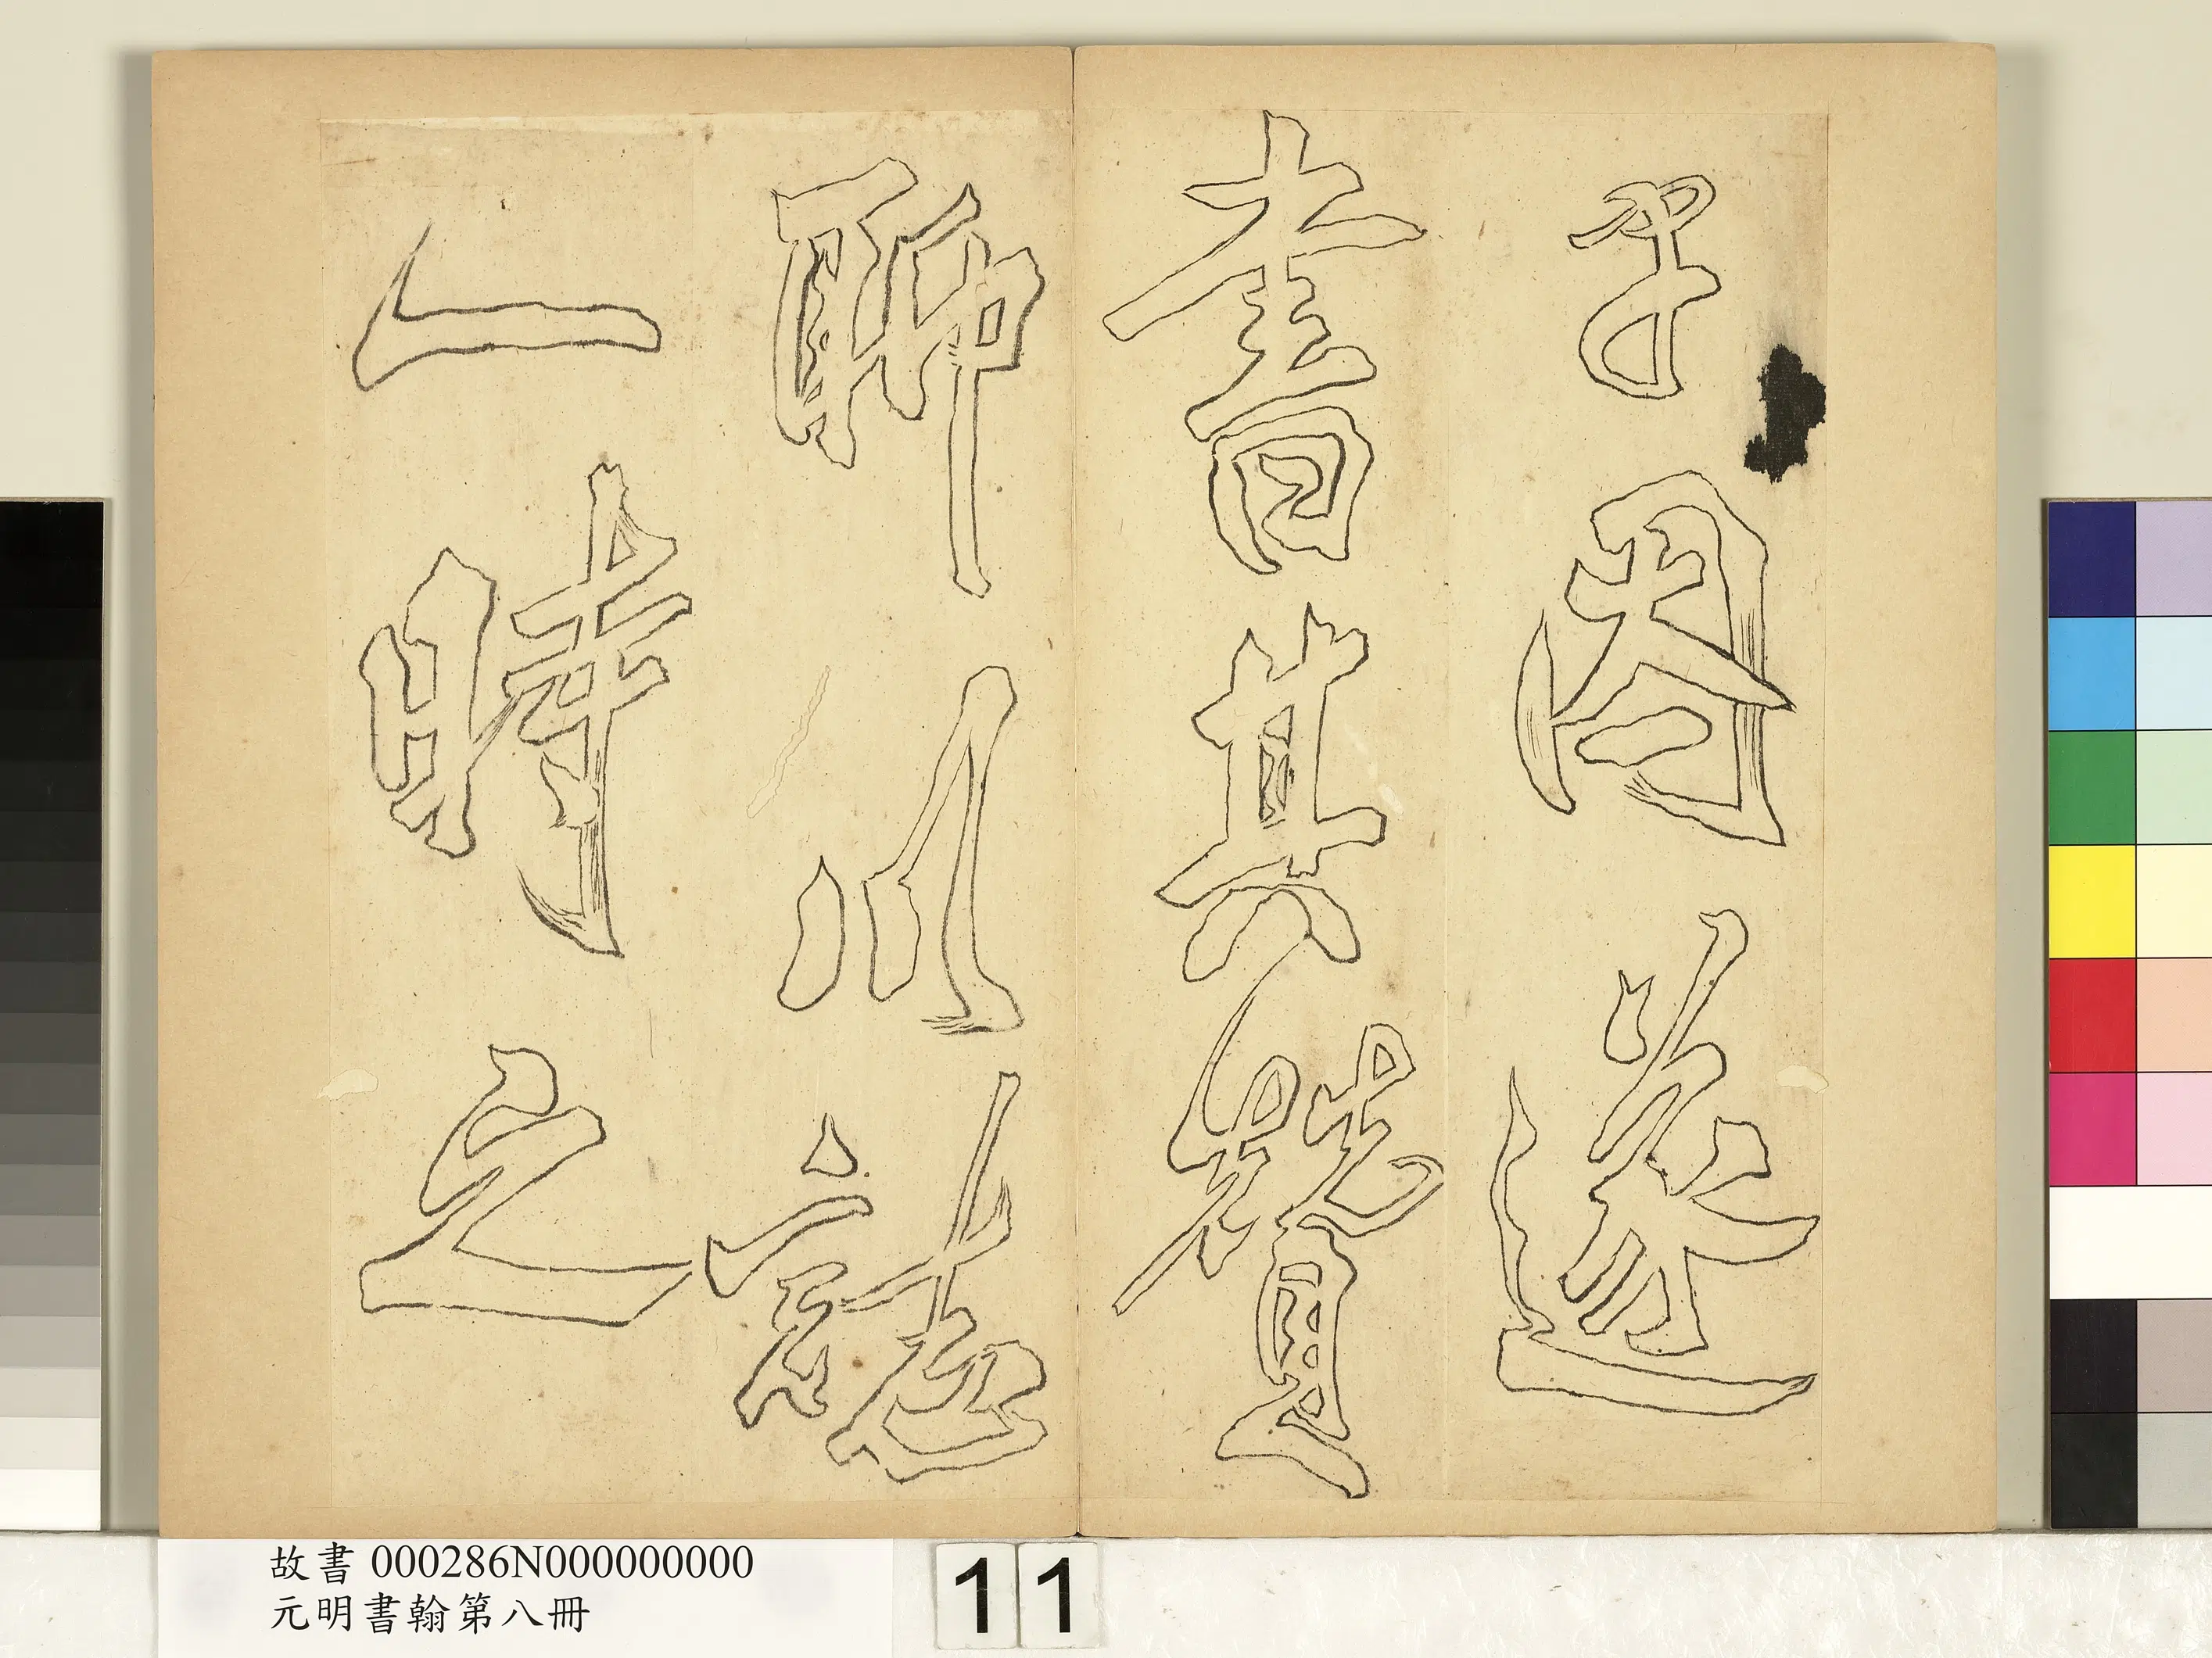 予因遂
書其贊
聊以誌
一時之
故書 000286N000000000
元明書翰第八冊
11